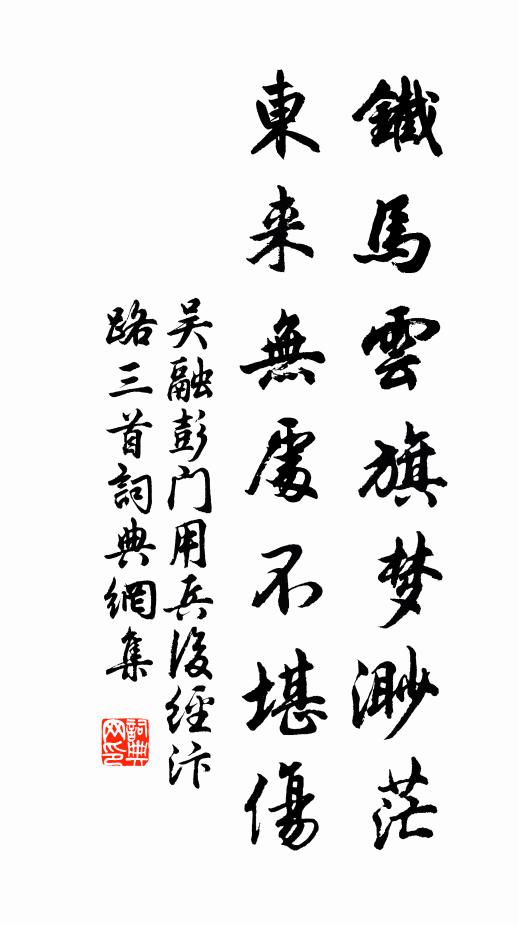 鐵馬雲旗梦渺茫
東来無處不堪傷
吴融彭门用兵後經汴
路三首詞典網集
詞典
网印